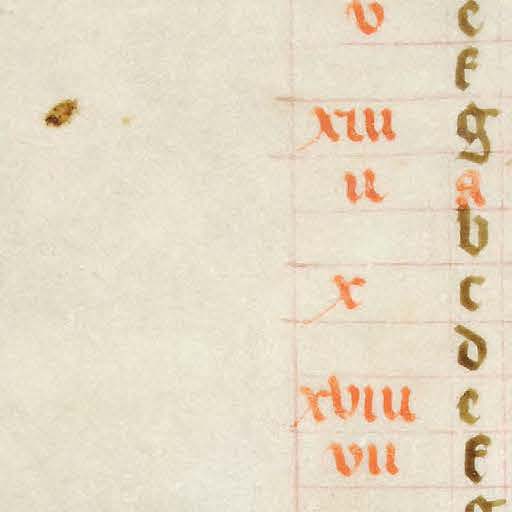 v e
f
xiii g
ii a
b
x c
d
xviii e
vii f
g